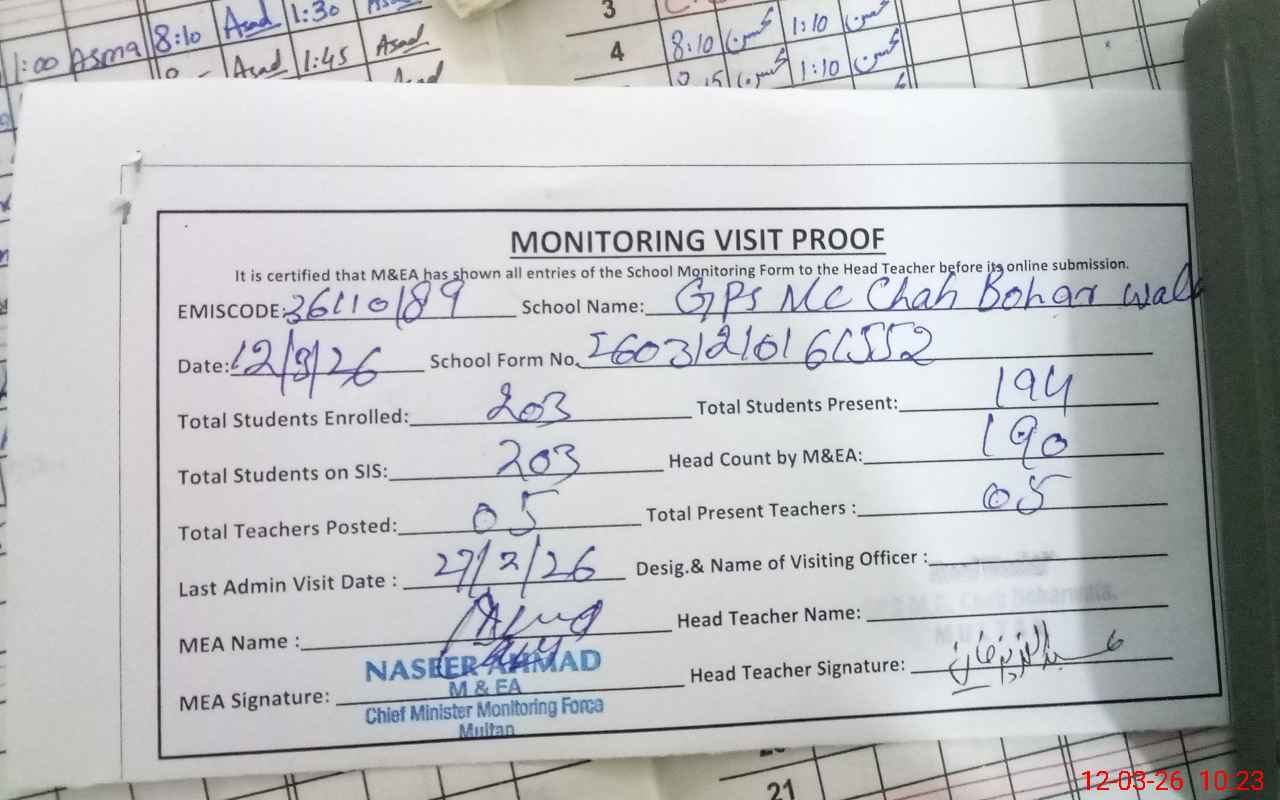 1:00 Asma 8:10 Asad 1:30
Asad 1:45 Asad
3
4 8:10 محسن 1:10 محسن
محسن 1:10 محسن
MONITORING VISIT PROOF
It is certified that M&EA has shown all entries of the School Monitoring Form to the Head Teacher before its online submission.
EMISCODE: 36110189 School Name: GPS MC Chah Bohar wala
Date: 12/3/26 School Form No.
Total Students Enrolled: 203 Total Students Present: 194
Total Students on SIS: 203 Head Count by M&EA: 190
Total Teachers Posted: 05 Total Present Teachers : 05
Last Admin Visit Date : 27/2/26 Desig.& Name of Visiting Officer :
MEA Name : Head Teacher Name:
NASEER AHMAD
M & EA
Chief Minister Monitoring Force
Multan
MEA Signature: Head Teacher Signature:
21
12-03-26 10:23